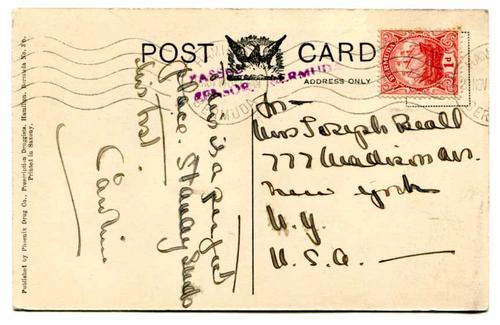 POST CARD
ADDRESS ONLY
PASSED
CENSOR, BERMUDA
BERMUDA
BERMUDA
This is a perfect
place. Stanley sends
his best
Caroline
Mrs Joseph Beall
777 Madison Av.
New York
N.Y.
U.S.A.
Published by Phoenix Drug Co., Prescription Druggists, Hamilton, Bermuda No.
Printed in Saxony.